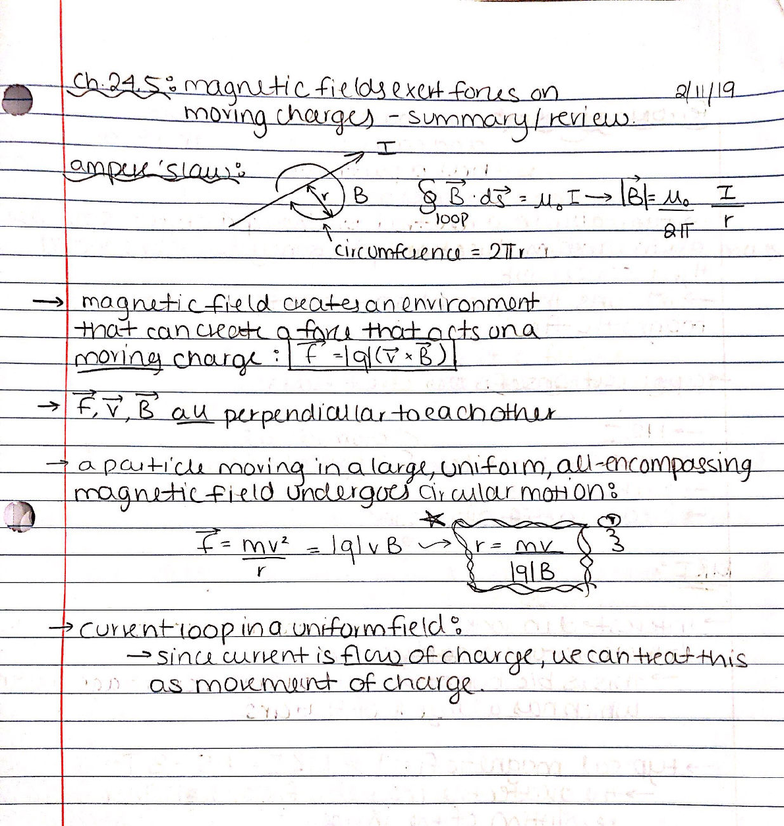 Ch. 24.5: magnetic fields exert forces on 2/11/19
moving charges - summary/review.
ampere's law:
I
r B
∮ B⃗ · ds⃗ = μ₀ I → |B⃗| = μ₀/2π I/r
loop
circumference = 2πr
→ magnetic field creates an environment
that can create a force that acts on a
moving charge: f⃗ = |q|(v⃗ × B⃗)
→ f⃗, v⃗, B⃗ all perpendicular to each other
→ a particle moving in a large, uniform, all-encompassing
magnetic field undergoes circular motion:
f⃗ = mv²/r = |q| v B → r = mv/|q|B
→ current loop in a uniform field:
→ since current is flow of charge, we can treat this
as movement of charge.